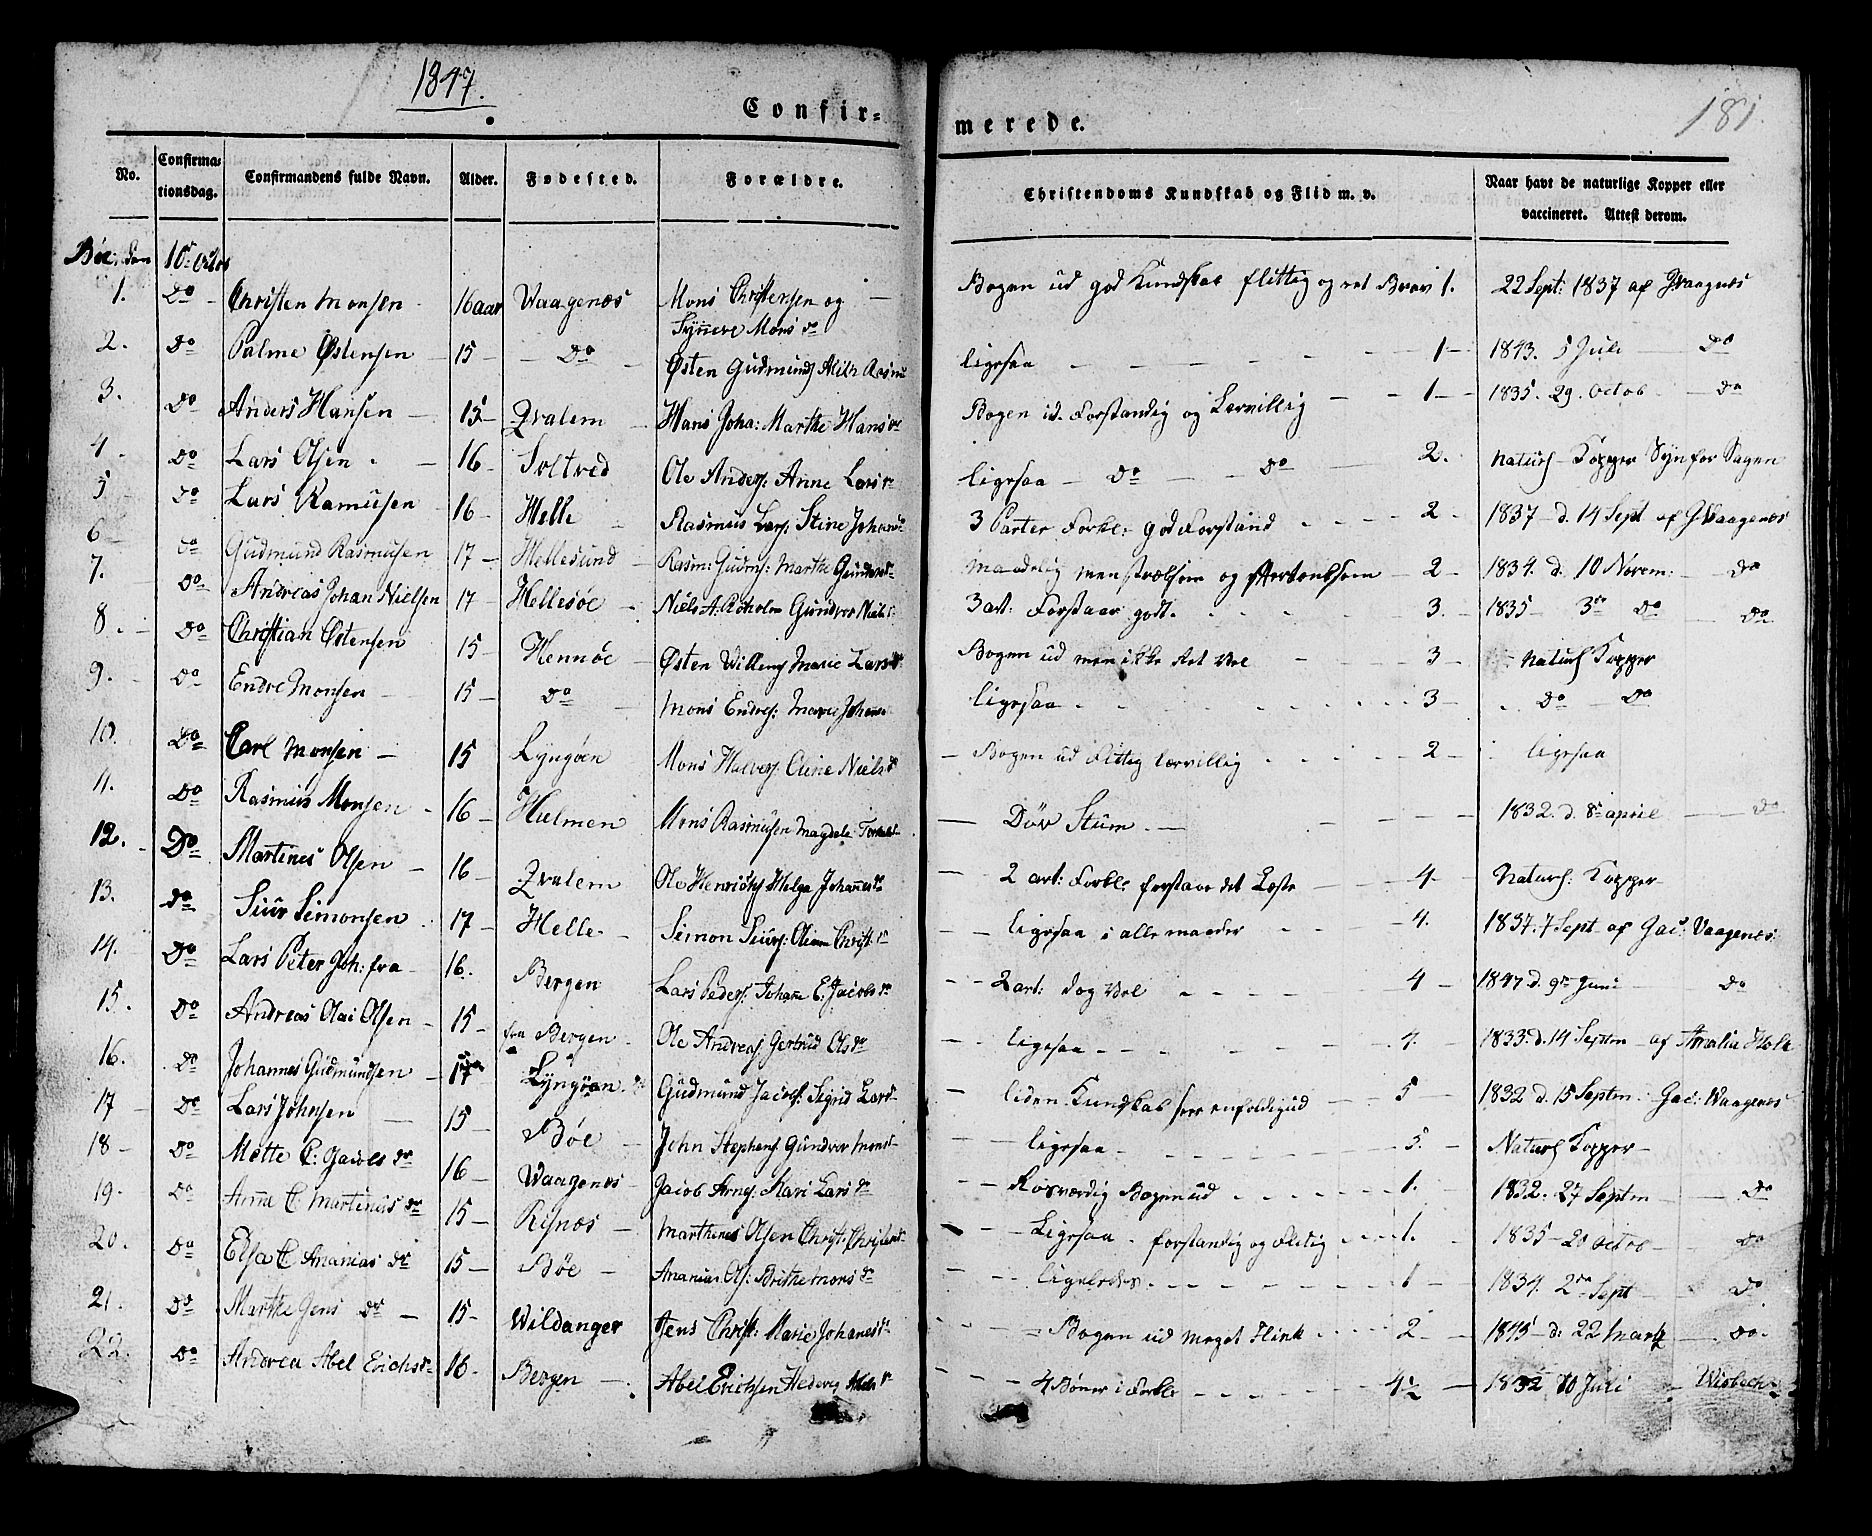 1847.
Confir=
merede.
181.
No.
Confirma=
tionsdag.
Confirmandens fulde Navn.
Alder.
Fødested.
Forældre.
Christendoms Kundskab og Flid m. v.
Naar havt de naturlige Kopper eller
vaccineret. Attest derom.
Bøe, den 10de Octob
1. Do Christen Monsen 16 aar Vaagenæs Mons Christensen og Bogen ud god Kundskab flittig og ret Brav 1. 22 Sept: 1837 af J Vaagnæs
Synneve Mons dr
2. Do Palme Østensen 15 Do Østen Gudmunds ligesaa 1 1843. 5 Juli Do
3. Do Anders Hansen 15 Qvalem Hans Joha: Marthe Hans dr Bogen ud. Forstandig og Lærvillig 1 1835. 29. Octob. Do
4. Do Lars Olsen 16 Soltved Ole Anders: Anne Lars dr ligesaa Do Do 2. Naturl Kopper Syn for Sagen
5 Do Lars Rasmusen 16 Helle Rasmus Lars: Stine Johans 3 Parter Forkl: god Forstand 2 1837 d. 14 Sept af J Vaagenes
6 Do Gudmund Rasmusen 17 Hellesund Rasm: Gudms: Marthe maadelig men strælsom og eftertenksom 2 1834. d. 10 Novem: Do
7. Do Andreas Johan Nielsen 17 Hellesøe Niels A: Gundvor Niels 3 art: Forstaar godt. 3. 1835 3de Do Do
8. Do Christian Østensen 15 Hennøe Østen Willems Marie Lars dr Bogen ud men ikke Ret Vel 3 Naturl Kopper
9. Do Endre Monsen 15 Do Mons Endres: Marie Johann ligesaa 3 Do Do
10. Do Carl Monsen 15 Lyngøen Mons Halvors: Niels dr Bogen ud flittig lærvillig 2 ligesaa
11. Do Rasmus Monsen 16 Hulmen Mons Rasmusen Magdele Døv Stum. 1832. d. 8de april Do
12. Do Martines Olsen 16 Qvalem Ole Henriks Helga Johannes dr 2 art: Forkl: forstaar det Læste 4 Naturl: Kopper
13. Do Siur Simonsen 17 Helle Simon Siurs: Christ: dr ligesaa i alle maader 4. 7 Sept af Jac: Vaagenes
14. Do Lars Peter Joh: fra 16. Bergen Lars Peders: Johane E: Jacobs dr 2 art: dog Vel 4 1847 d. 9de Juni Do
15. Do Andreas Olai Olsen 15 fra Bergen Ole Andreas Gertrud Ols dr ligesaa 4. 1833. d. 14 Septm af Amalia Holk
16. Do Johannes Gudmundsen 17 Lyngøen Gudmund Jacobs: Sigrid Lars liden Kundskab 5 1832 d. 15 Septm. Jac: Waagenes
17 Do Lars Johnsen 15 Bøe John Stephens Gundvor Mons ligesaa 5. Naturl Kopper
18 Do Mette C: Jacobs dr 16 Waagenes Jacob Arnes Kari Lars dr Rosværdig Bogen ud 1. 1832. 27 Septm Do
19. Do Anna C Martinus dr 15 Risnæs Marthenes Olsen Christ: Ligesaa forstandig og flitig 1. 1835 20 Octob Do
20. Do Elsa C Ananias dr 15 Bøe Ananias Ols: Brithe Mons dr 1 1834. 2den Sept Do
21. Do Marthe Jens dr 15 Wildanger Jens Christ: Marie Johanes dr Bogen ud meget Flink 2 1845 d: 22 Do.
22. Do Andrea Abel Erichs dr 16. Bergen Abel Erichsen 4 Bøner i Forkl 4½ 1832 10 Juli Wisbech